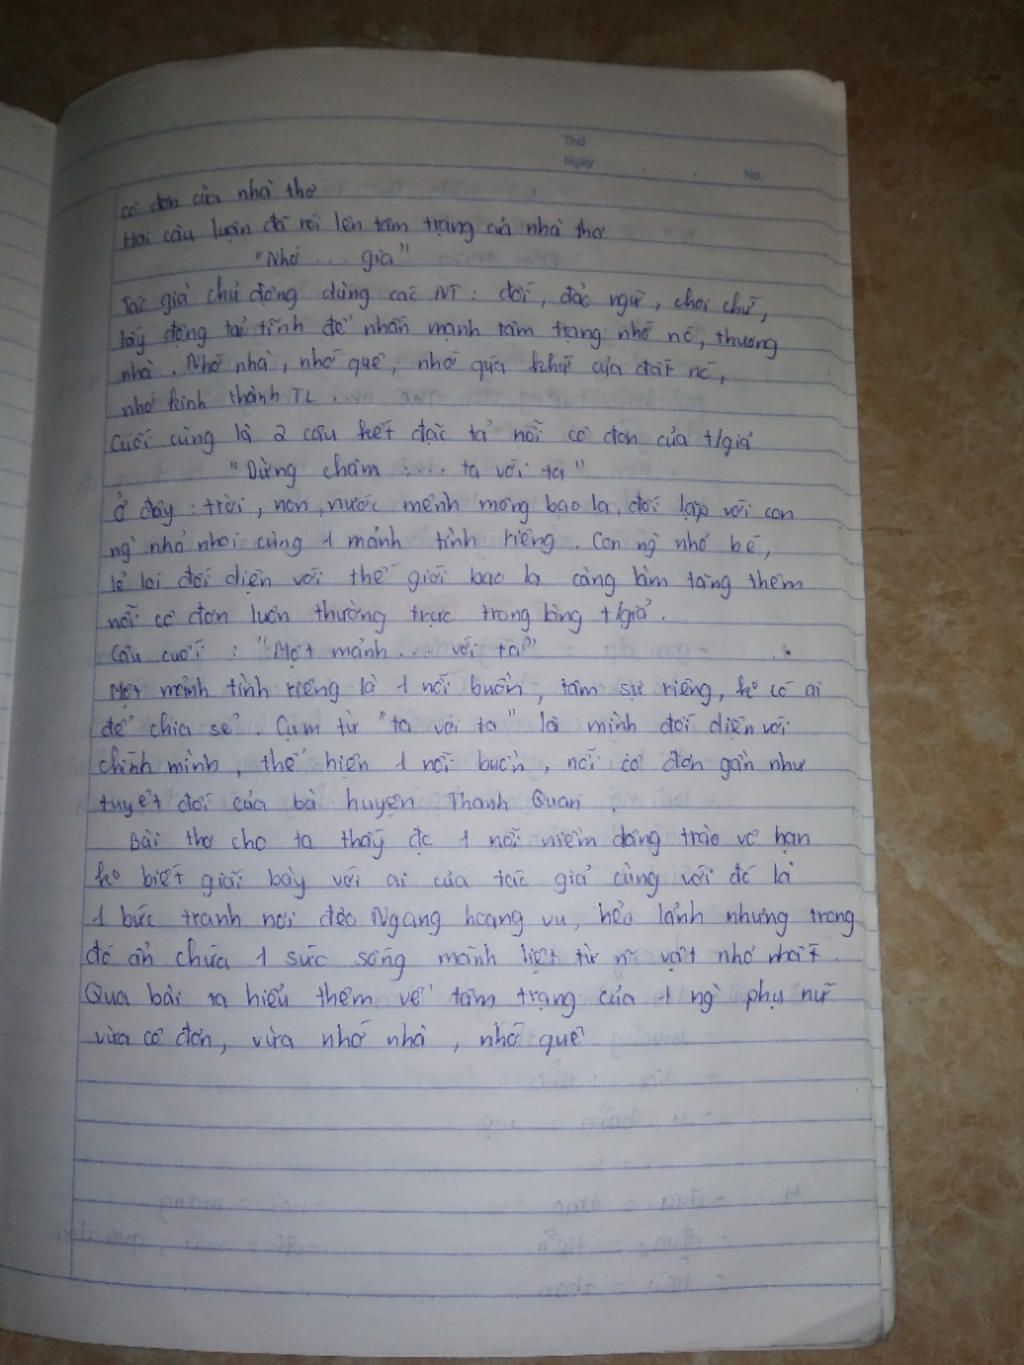 Thứ
Ngày
No.
cô đơn của nhà thơ
Hai câu luận đã nói lên tâm trạng của nhà thơ
"Nhớ ... gia"
Tác giả chủ động dùng các NT : đối, đảo ngữ, chơi chữ,
lấy động tả tĩnh để nhấn mạnh tâm trạng nhớ nc, thương
nhà. Nhớ nhà, nhớ quê, nhớ quá khứ của đất nc,
nhớ kinh thành TL ...
Cuối cùng là 2 câu kết đặc tả nỗi cô đơn của t/giả
"Dừng chân .... ta với ta"
Ở đây : trời, non, nước mênh mông bao la, đối lập với con
ng` nhỏ nhoi cùng 1 mảnh tình riêng. Con ng` nhỏ bé,
lẻ loi đối diện với thế giới bao la càng làm tăng thêm
nỗi cô đơn luôn thường trực trong lòng t/giả.
Câu cuối : "Một mảnh ... với ta"
Một mảnh tình riêng là 1 nỗi buồn, tâm sự riêng, ko có ai
để chia sẻ. Cụm từ "ta với ta" là mình đối diện với
chính mình, thể hiện 1 nỗi buồn, nỗi cô đơn gần như
tuyệt đối của bà huyện Thanh Quan.
Bài thơ cho ta thấy đc 1 nỗi niềm dâng trào vô hạn
ko biết giãi bày với ai của tác giả cùng với đó là
1 bức tranh nơi đèo Ngang hoang vu, hẻo lánh nhưng trong
đó ẩn chứa 1 sức sống mãnh liệt từ n~ vật nhỏ nhất.
Qua bài ta hiểu thêm về tâm trạng của 1 ng` phụ nữ
vừa cô đơn, vừa nhớ nhà, nhớ quê